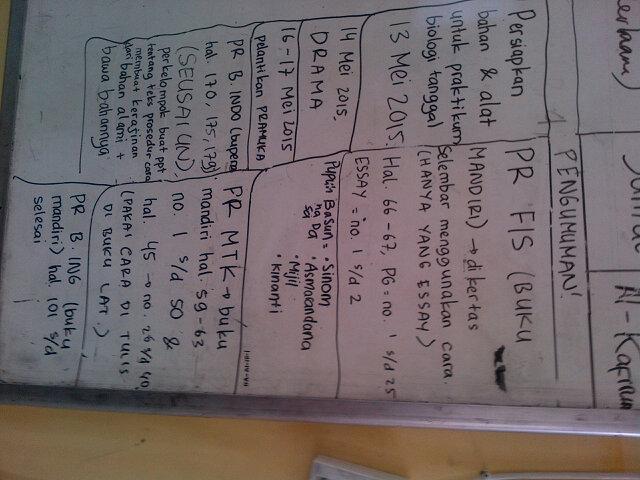 PENGUMUMAN!
Persiapkan
bahan & alat
untuk praktikum
biologi tanggal
13 Mei 2015.
14 Mei 2015.
DRAMA
16-17 Mei 2015
pelantikan PRAMUKA
PR B. INDO (bupena
hal. 170, 175, 179)
(SEUSAI UN),
perkelompok buat ppt
tentang teks prosedur cara
membuat kerajinan
dari bahan alami +
bawa bahannya
PR FIS (BUKU
MANDIRI) → di kertas
Selembar menggunakan cara.
(HANYA YANG ESSAY)
Hal. 66-67, PG = no. 1 s/d 25
ESSAY = no. 1 s/d 2
Pupuh Basun = • Sinom
• Asmarandana
• Mijil
• kinanti
PR MTK → buku
mandiri hal. 59-63
no. 1 s/d 50 &
hal. 45 → no. 26 s/d 40
(PAKAI CARA DI TULIS
DI BUKU LAT.)
PR B. ING (buku
mandiri) hal. 101 s/d
selesai
Al-Kafirun